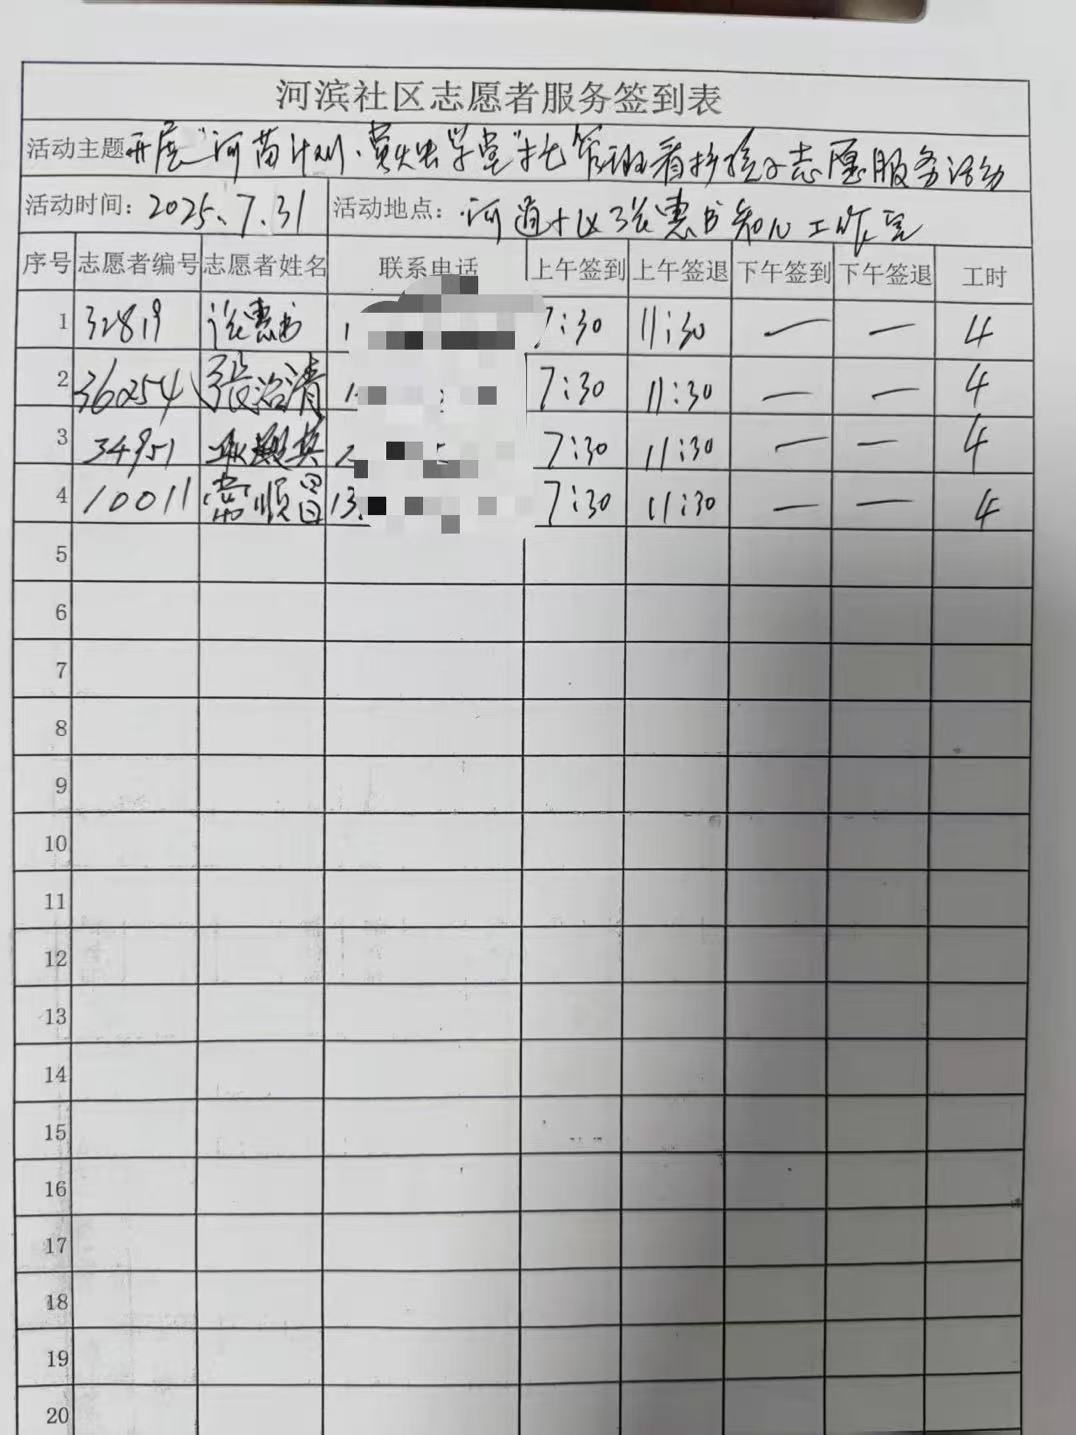 河滨社区志愿者服务签到表
活动主题 开展"河苗计划·萤火虫学堂"托管班看护孩子志愿服务活动
活动时间：2025.7.31 活动地点：河道小区张惠书知心工作室
序号 志愿者编号 志愿者姓名 联系电话 上午签到 上午签退 下午签到 下午签退 工时
1 32819 张惠书 1 7:30 11:30 — — 4
2 36254 张治清 1 7:30 11:30 — — 4
3 34951 英 7:30 11:30 — — 4
4 10011 常顺昌 13 7:30 11:30 — — 4
5
6
7
8
9
10
11
12
13
14
15
16
17
18
19
20